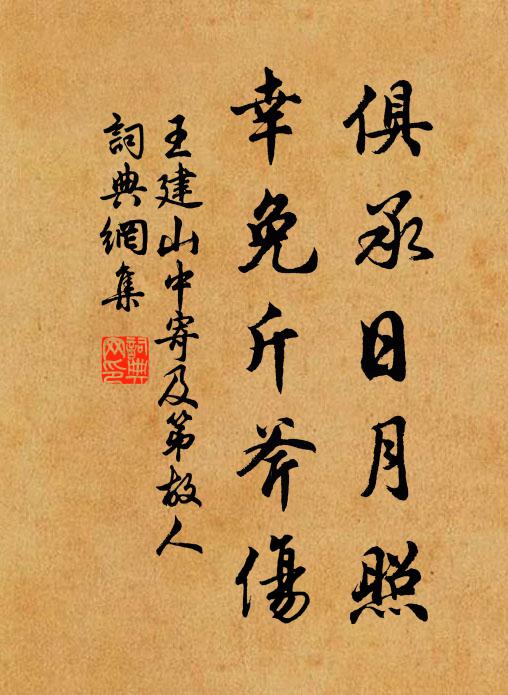 俱承日月照
幸免斤斧傷
王建山中寄及第故人
詞典網集
詞典
网印